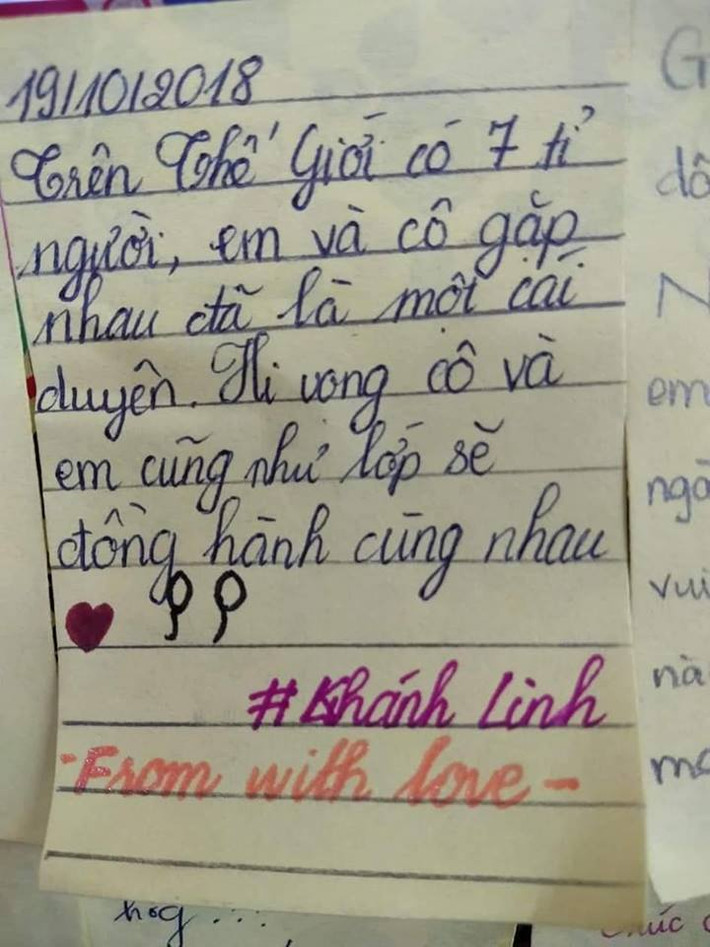 19/10/2018
Trên Thế Giới có 7 tỉ
người, em và cô gặp
nhau đã là một cái
duyên. Hi vong cô và
em cũng như lớp sẽ
đồng hành cùng nhau
#Khánh Linh
-From with love-
G
dô
N
em
ngà
vui
nà
mo